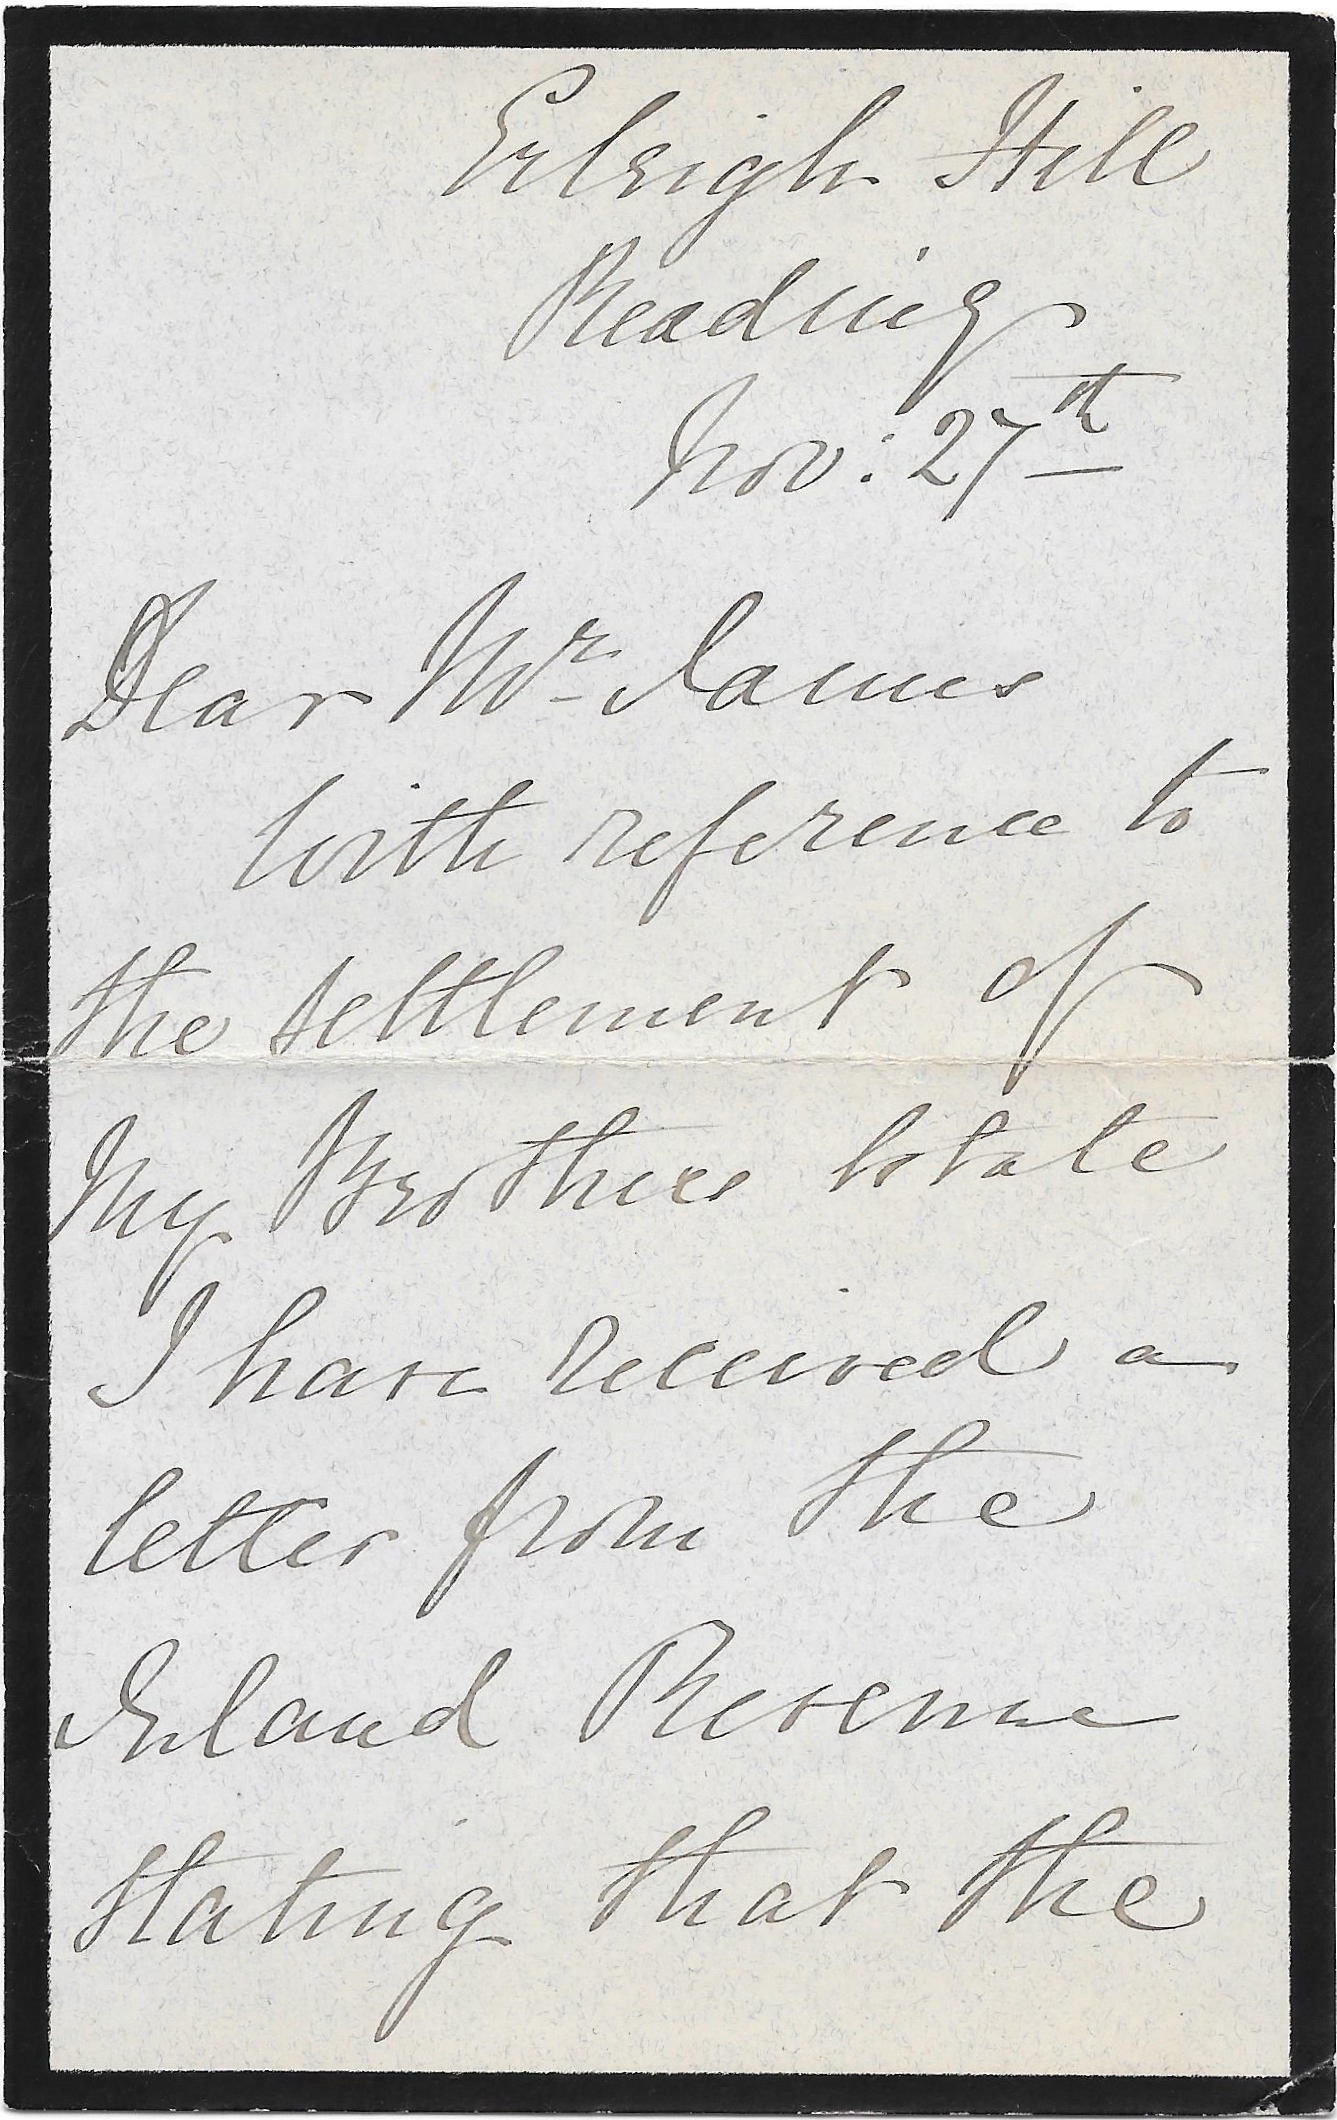 Erleigh Hill
Reading
Nov: 27th
Dear Mr James
With reference to
the settlement of
My Brothers Estate
I have received a
letter from the
Inland Revenue
stating that the